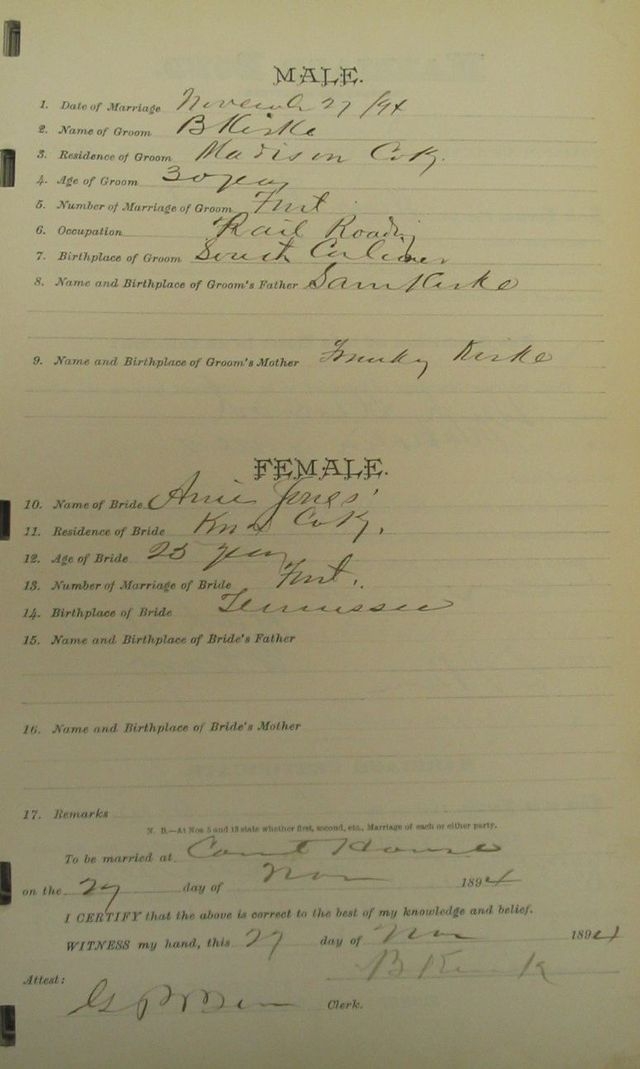 MALE.
1. Date of Marriage November 27 /94
2. Name of Groom B Kirke
3. Residence of Groom Madison Co Ky.
4. Age of Groom 30 year
5. Number of Marriage of Groom First
6. Occupation Rail Roading
7. Birthplace of Groom South
8. Name and Birthplace of Groom's Father Sam Kirke
9. Name and Birthplace of Groom's Mother Kirke
FEMALE.
10. Name of Bride Annie Jones
11. Residence of Bride Knox Co Ky,
12. Age of Bride 25 year
13. Number of Marriage of Bride First.
14. Birthplace of Bride Tennessee
15. Name and Birthplace of Bride's Father
16. Name and Birthplace of Bride's Mother
17. Remarks
N. B.—At Nos 5 and 13 state whether first, second, etc., Marriage of each or either party.
To be married at Court House
on the 27 day of Nov 1894
I CERTIFY that the above is correct to the best of my knowledge and belief.
WITNESS my hand, this 27 day of Nov 1894
B
Attest:
Clerk.